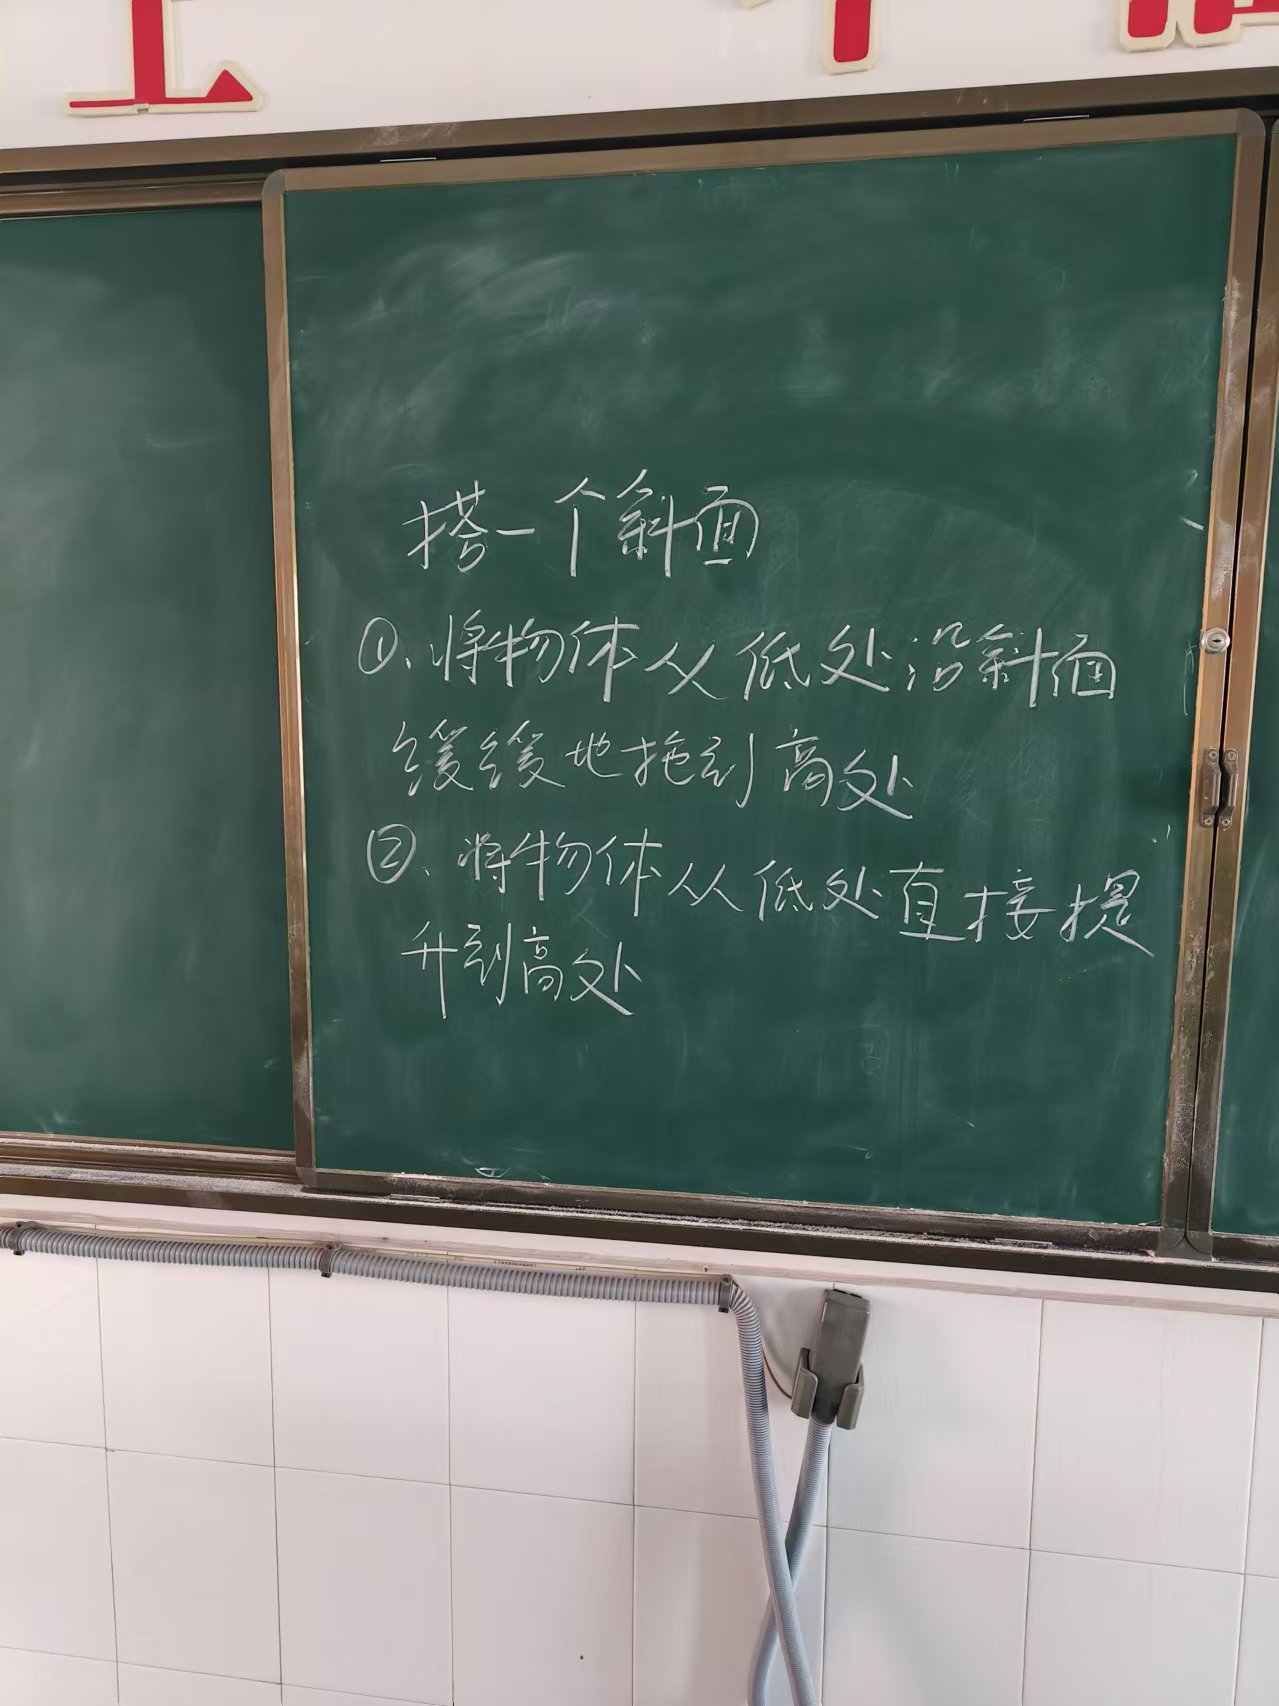 搭一个斜面
①、将物体从低处沿斜面
缓缓地拖到高处
②、将物体从低处直接提
升到高处